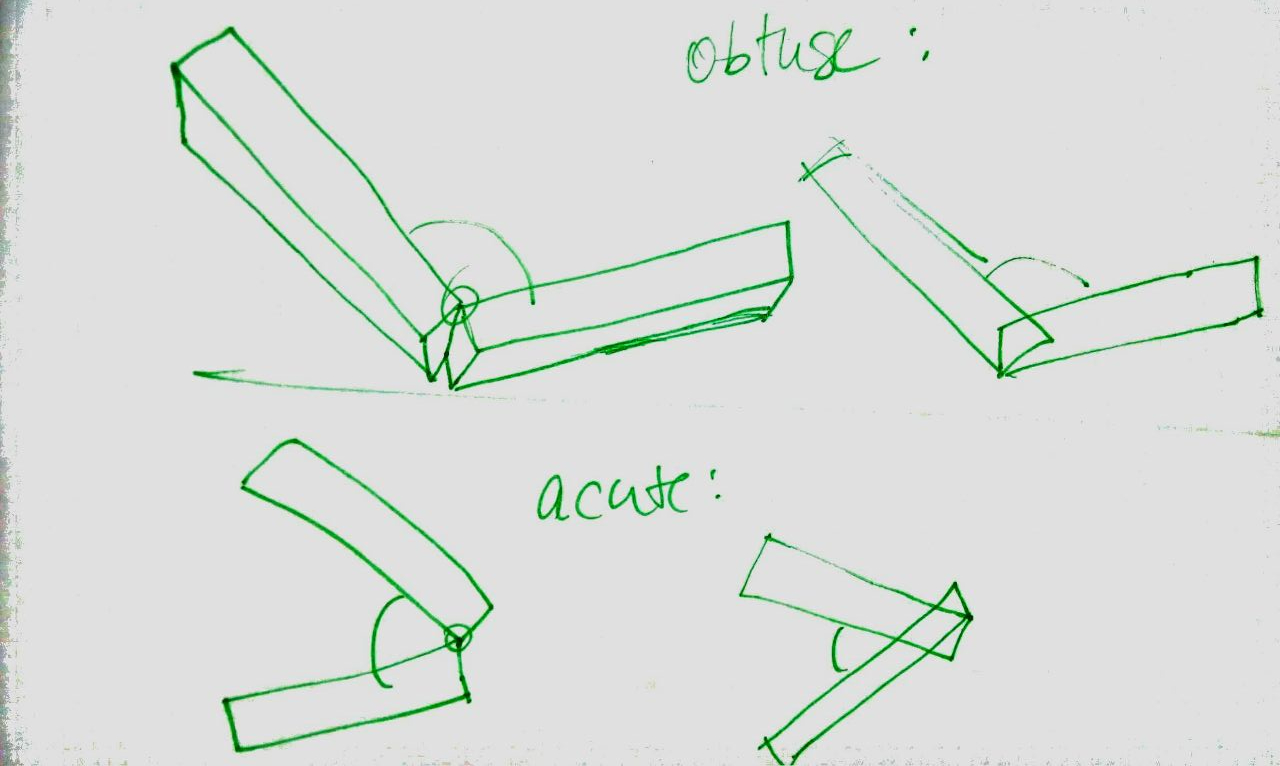 Obtuse :
acute :